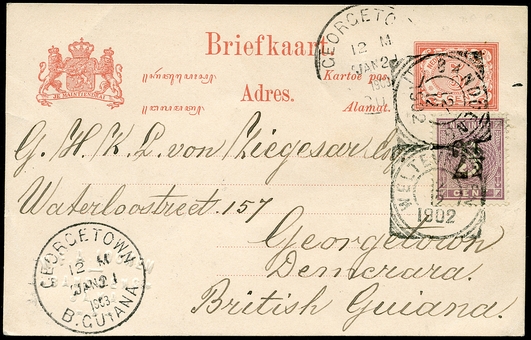 GEORGETOWN
12 M
JAN 21
1903
Briefkaart
Kartoe pos.
Adres.
Alamat.
JE MAINTIENDRAI
5
BANDOENG
2½
CENT
WELTEVREDEN
1902
G. H. K. L. von Ziegesar Esq
Waterloostreet. 157
Georgetown
Demerara.
British Guiana.
GEORGETOWN
12 M
JAN 21
1903
B. GUIANA